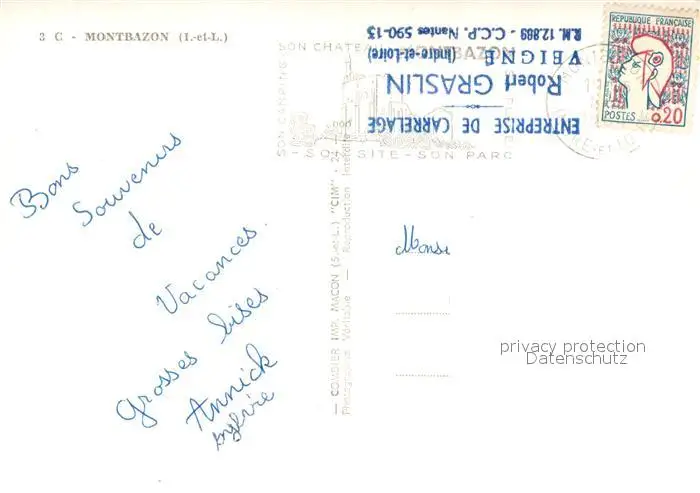 3 C - MONTBAZON (I.-et-L.)
Bons
Souvenirs
de
Vacances.
Grosses bises
Annick
Sylvie
— COMBIER IMP. MACON (S.-et-L.) "CIM"
Photographie Véritable — Reproduction Interdite
SON CHATEAU
MONTBAZON
SON CAMPING
- SON SITE - SON PARC
ENTREPRISE DE CARRELAGE
Robert GRASLIN
VEIGNÉ (Indre-et-Loire)
R.M. 12.889 - C.C.P. Nantes 590-13
REPUBLIQUE FRANÇAISE
POSTES 0,20
Monsi
privacy protection
Datenschutz